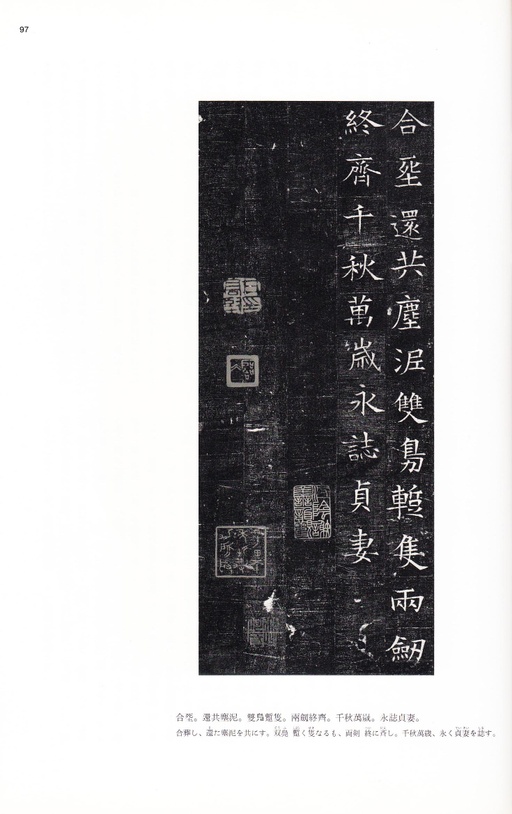 97
合還共塵泥雙鳧蹔隻兩劒
終齊千秋萬歲永誌貞妻
合。還共塵泥。雙鳧蹔隻。兩劒終齊。千秋萬歲。永誌貞妻。
合葬し、還た塵泥を共にす。双鳧 蹔く隻なるも、両剣 終に斉し。千秋萬歳、永く貞妻を誌す。